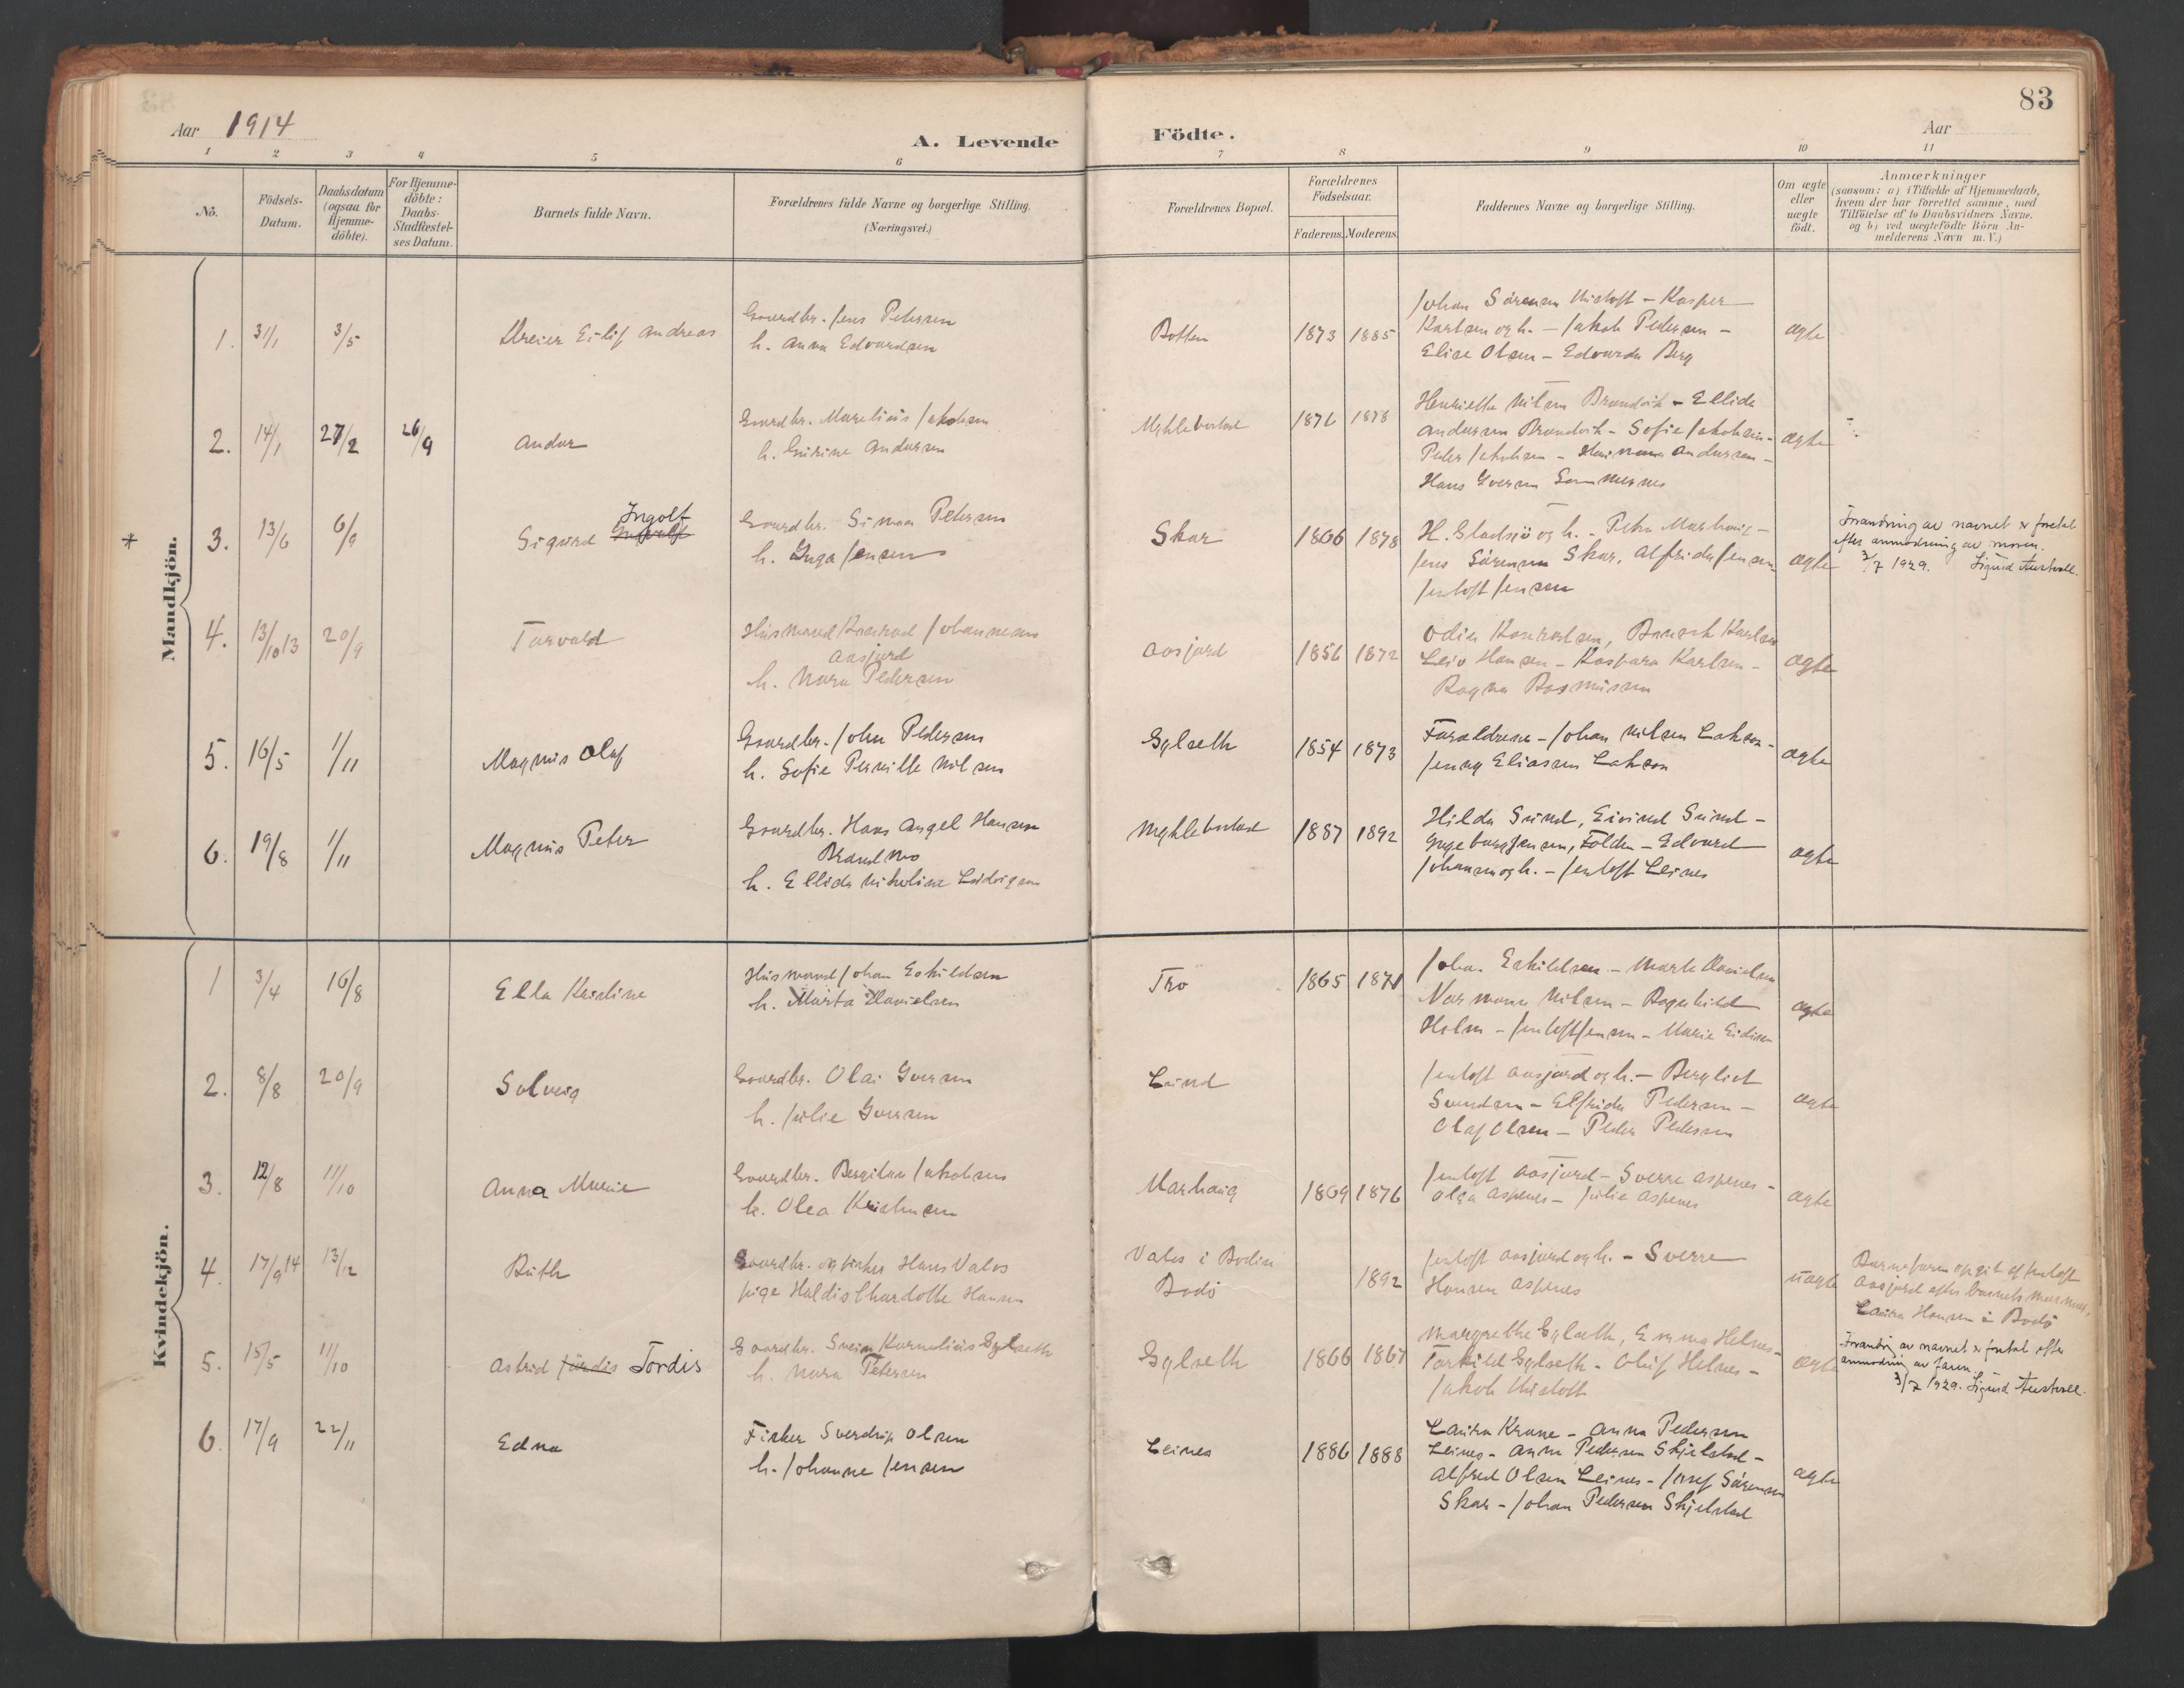 83
Aar 1914
A. Levende Födte.
Aar
1 2 3 4 5 6 7 8 9 10 11
No.
Födsels-Datum.
Daabsdatum (ogsaa for Hjemme-döbte).
For Hjemme-döbte: Daabs-Stadfæstel-ses Datum.
Barnets fulde Navn.
Forældrenes fulde Navne og borgerlige Stilling. (Næringsvei.)
Forældrenes Bopæl.
Forældrenes Födselsaar.
Faderens. Moderens.
Faddernes Navne og borgerlige Stilling.
Om ægte eller uægte födt.
Anmærkninger
(saasom: a) i Tilfælde af Hjemmedaab,
hvem der har forrettet samme, med
Tilföielse af to Daabsvidners Navne.
og b) ved uægtefödte Börn An-
melderens Navn m. V.)
Mandkjön.
1. 31/1 3/5 Eilif Andreas
Gaardbr. Jens Petersen
h. Anna Edvardsen
Botten 1873 1885
Johan Sörensen Misloft – Kasper
Karlsen og h. – Jakob Pedersen –
Elise Olsen – Edvarda Berg
ægte
2. 14/1 27/2 26/9 Andor
Gaardbr. Marelius Jakobsen
h. Andersen
Myklebostad 1876 1878
Henriette Nilsen Brandvik – Ellida
Andersen Brandvik – Sofie Jakobsen –
Peder Jakobsen – Andersen –
Hans Iversen
ægte
* 3. 13/6 6/9 Sigurd Ingolf
Gaardbr. Simon Petersen
h. Inga Jensen
Skar 1866 1878
H. Gladsjö og h. – Petra Marhaug –
Jens Sörensen Skar, Alfrida Jensen
Jentoft Jensen
ægte
Forandring av navnet er foretat
efter anmodning av moren.
3/7 1929. Sigurd Austvoll.
4. 13/10 13 20/9 Torvald
Husmand Konrad Johannesen
Aasjord
h. Nora Pedersen
Aasjord 1856 1872
Odin Konradsen, Karlsen
Leiv Hansen – Kaspara Karlsen –
Ragna Rasmussen
ægte
5. 16/5 1/11 Magnus Olaf
Gaardbr. John Pedersen
h. Sofie Pernille Nilsen
Gylseth 1854 1873
Forældrene – Johan Nilsen Lakson –
Jenny Eliasen Lakson
ægte
6. 19/8 1/11 Magnus Peter
Gaardbr. Hans Angel Hansen
Brandmo
h. Ellida Nikoline Ludvigsen
Myklebostad 1887 1892
Hilda Sund, Eivind Sund –
Ingeborg Jensen, Folden – Edvard
Johansen og h. – Jentoft Leines
ægte
Kvindekjön.
1 3/4 16/8 Ella Kristine
Husmand Johan Eskildsen
h. Marta Danielsen
Tro 1865 1871
Johan Eskildsen – Marta Danielsen
Normann Nilsen – Ragnhild
Holm – Jentoft Jensen – Marie Eidissen
ægte
2. 8/8 20/9 Solveig
Gaardbr. Olai Iversen
h. Julie Iversen
Lund
Jentoft Aasjord og h. – Bergliot
Svendsen – Elfrida Pedersen –
Olaf Olsen – Peder Pedersen
ægte
3. 12/8 11/10 Anna Marie
Gaardbr. Bergiton Jakobsen
h. Olea Kristensen
Marhaug 1869 1876
Jentoft Aasjord – Sverre Aspenes –
Olga Aspenes – Julie Aspenes
ægte
4. 17/9 14 13/12 Ruth
Gaardbr. og fisker Hans Valos
pige Haldis Chardotte Hansen
Valos i Bodin
Bodö 1892
Jentoft Aasjord og h. – Sverre
Hansen Aspenes
uægte
Barnefaren opgit af Jentoft
Aasjord efter barnets mormor,
Laura Hansen i Bodö
5. 15/5 11/10 Astrid Jördis Tordis
Gaardbr. Svein Kornelius Gylseth
h. Nora Petersen
Gylseth 1866 1867
Margrethe Gylseth, Emma Helnes –
Torkild Gylseth – Oluf Helnes –
Jakob Misloft
ægte
Forandring av navnet er foretat efter
anmodning av faren.
3/7 1929. Sigurd Austvoll.
6. 17/9 22/11 Edna
Fisker Sverdrup Olsen
h. Johanne Jensen
Leines 1886 1888
Laura Krane – Anna Pedersen
Leines – Anne Pedersen Skjelstad –
Alfred Olsen Leines – Josef Sörensen
Skar – Johan Pedersen Skjelstad
ægte